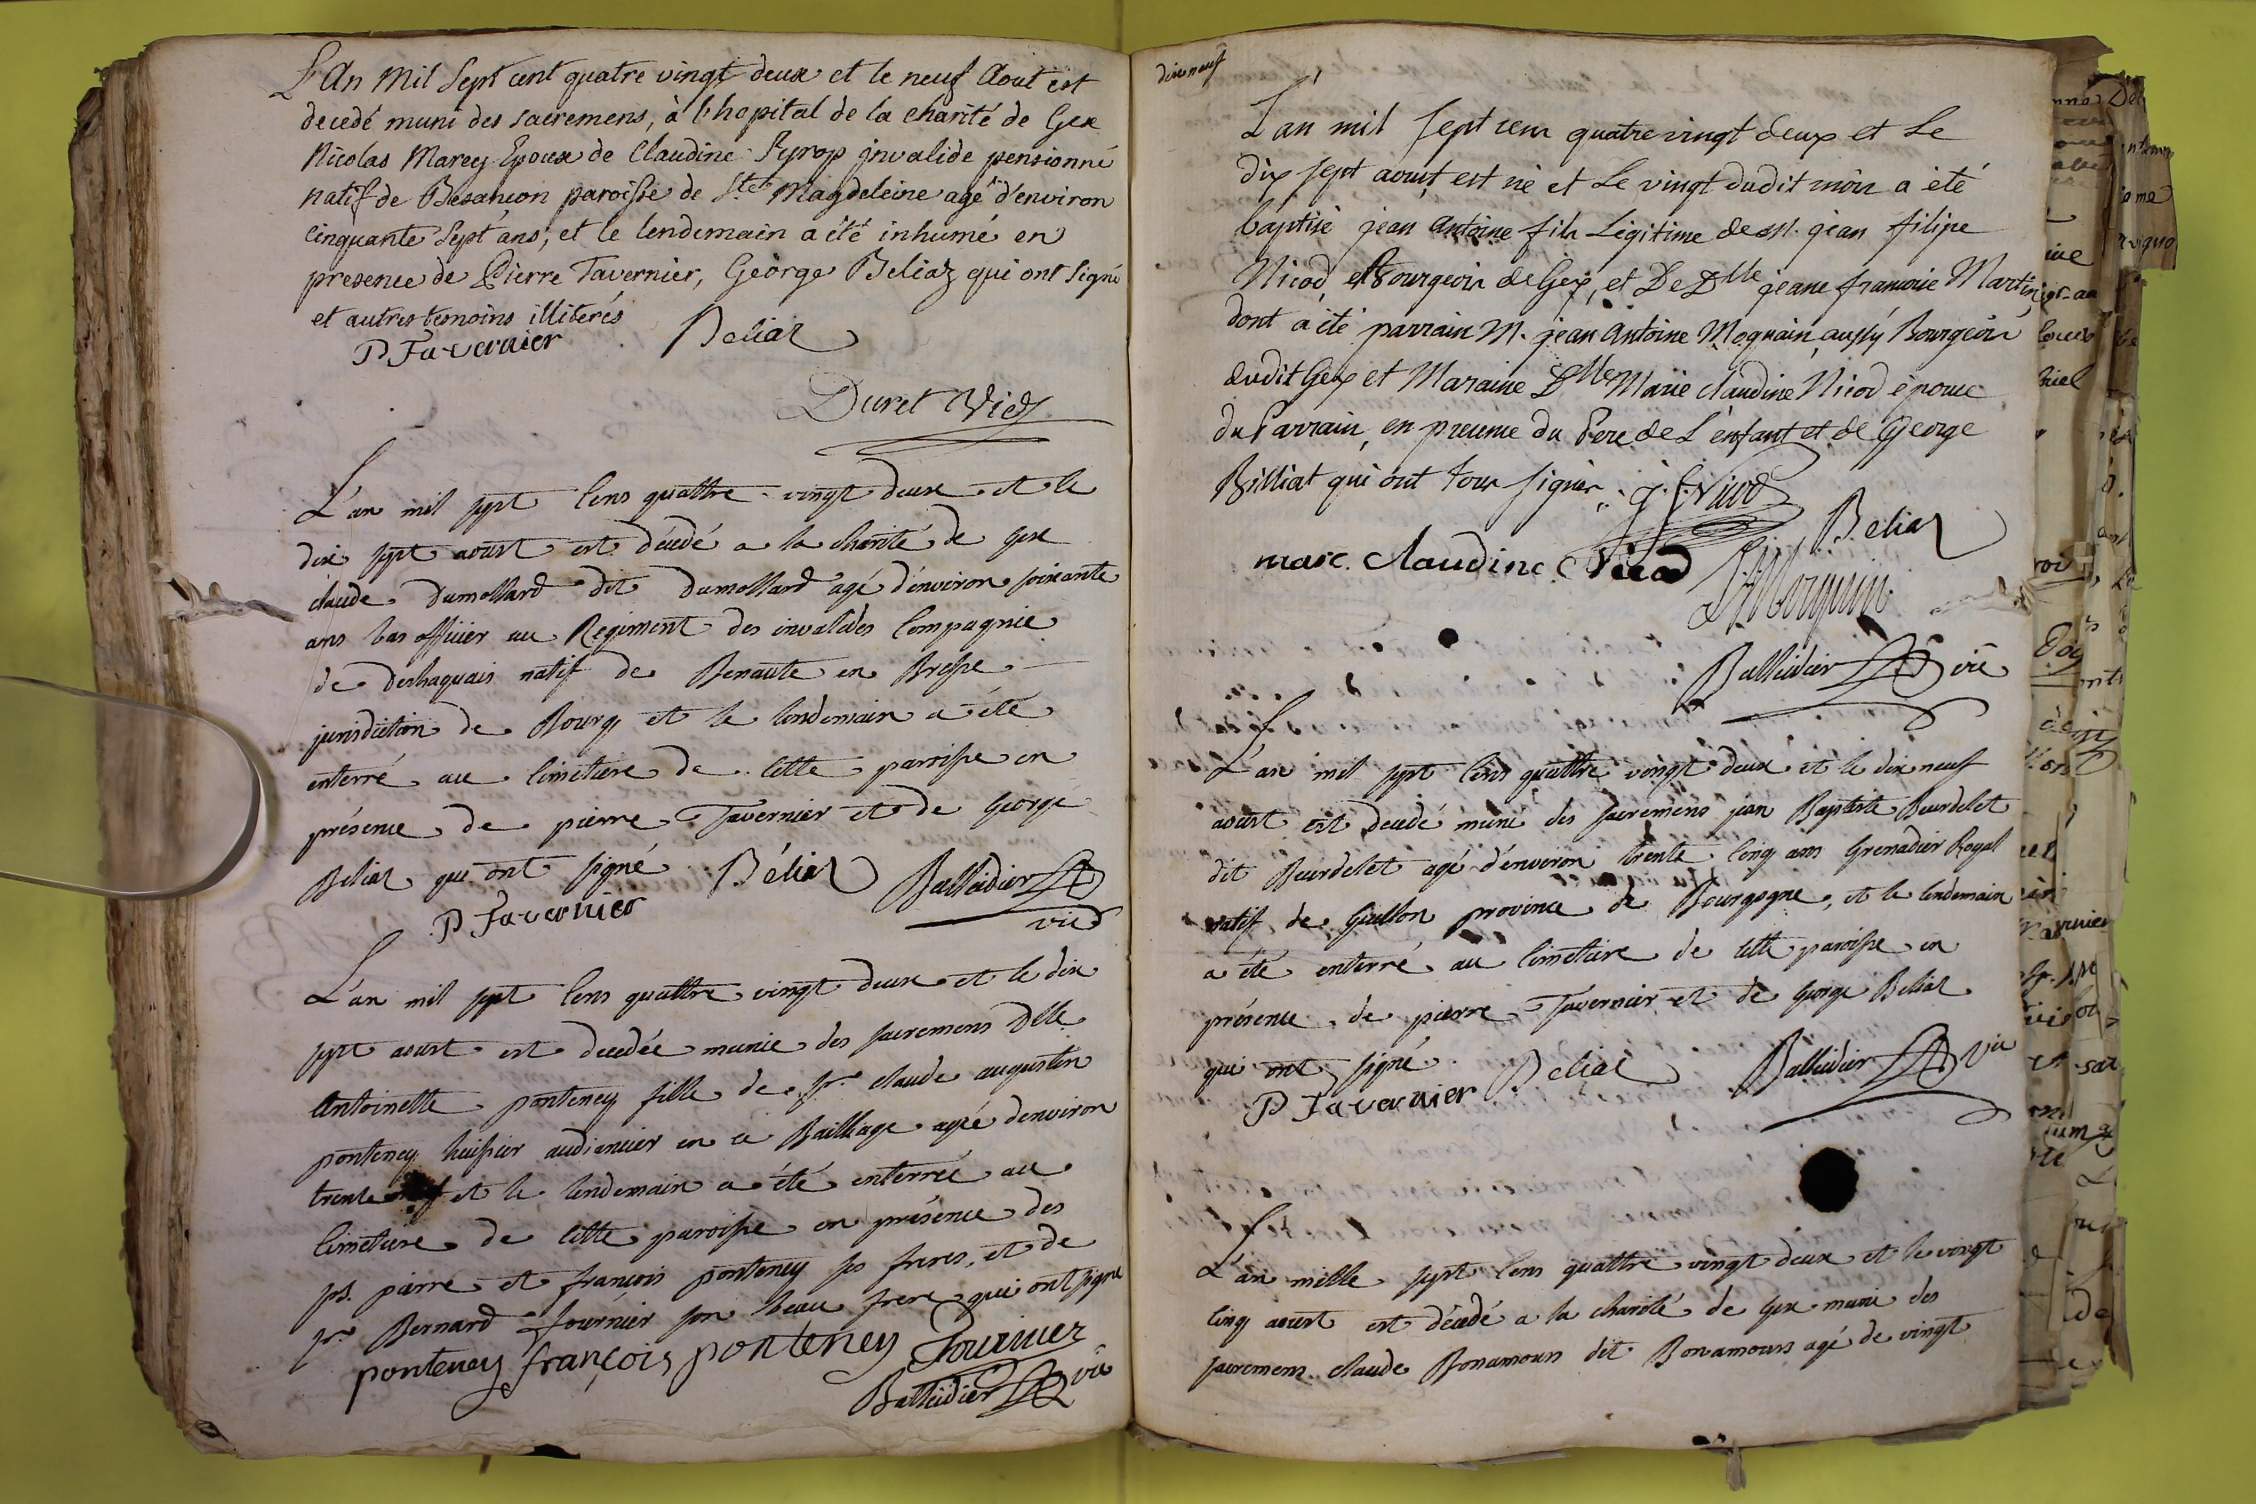 L'An Mil Sept cent quatre vingt deux et le neuf Aout est
decedé muni des sacremens, à l'hopital de la charité de Gex
Nicolas Marey Epoux de Claudine Pyrop invalide pensionné
natif de Besançon paroisse de Ste Magdeleine agé d'environ
cinquante Sept ans, et le lendemain a été inhumé en
presence de Pierre Tavernier, George Beliaz qui ont signé
et autres temoins illiterés
P Tavernier Beliaz
Duret Vic
L'an mil sept cens quattre vingt deux et le
dix sept aoust est décédé a la charité de gex
claude Dumollard dit Dumollard agé d'environ soixante
ans bas officier au Regiment des invalides Compagnie
de Deshaquais natif de Benaute en Bresse
jurisdiction de Bourg et le lendemain a été
enterré au cimetiere de cette paroisse en
présence de pierre Tavernier et de George
Beliaz qui ont signé Béliaz Balleidier
P Tavernier vic
L'an mil sept cens quattre vingt deux et le dix
sept aoust est decedée munie des sacremens Dlle
Antoinette ponteney fille de sr claude augustin
ponteney huissier audiencier en ce Bailliage agée denviron
trente et le lendemain a été enterrée au
cimetiere de cette paroisse en présence des
ss. pierre et francois ponteney ses freres, et de
sr Bernard fournier son beau frere qui ont signé
ponteney françois ponteney Fournier
Balleidier vic
dix neuf
L'an mil sept cen quatre vingt deux et Le
dix sept aoust est né et Le vingt dudit mois a été
baptisé jean Antoine fils Légitime de M. jean filipe
Nicod Bourgeois de Gex, et De Dlle jeane francoise Martin
dont a été parrain M. jean Antoine Moquain aussy Bourgeois
dudit Gex et Maraine Dlle Marie claudine Nicod épouse
du Parrain, en presence du Pere de L'enfant et de George
Billiat qui ont tous signés j.f. Nicod
Beliaz
marc. claudine Nicod
Balleidier vic
L'an mil sept cens quattre vingt deux et le dix neuf
aoust est decedé muni des sacremens jean Baptiste Bourdelet
dit Bourdelet agé d'environ trente cinq ans Grenadier Royal
natif de Guillon province de Bourgogne, et le lendemain
a été enterré au cimetiere de cette paroisse en
présence de pierre Tavernier et de George Beliaz
qui ont signé
P Tavernier Beliaz Balleidier Vic
L'an mille sept cens quattre vingt deux et le vingt
cinq aoust est décédé a la charité de gex muni des
sacremens claude Bonamours dit Bonamours agé de vingt